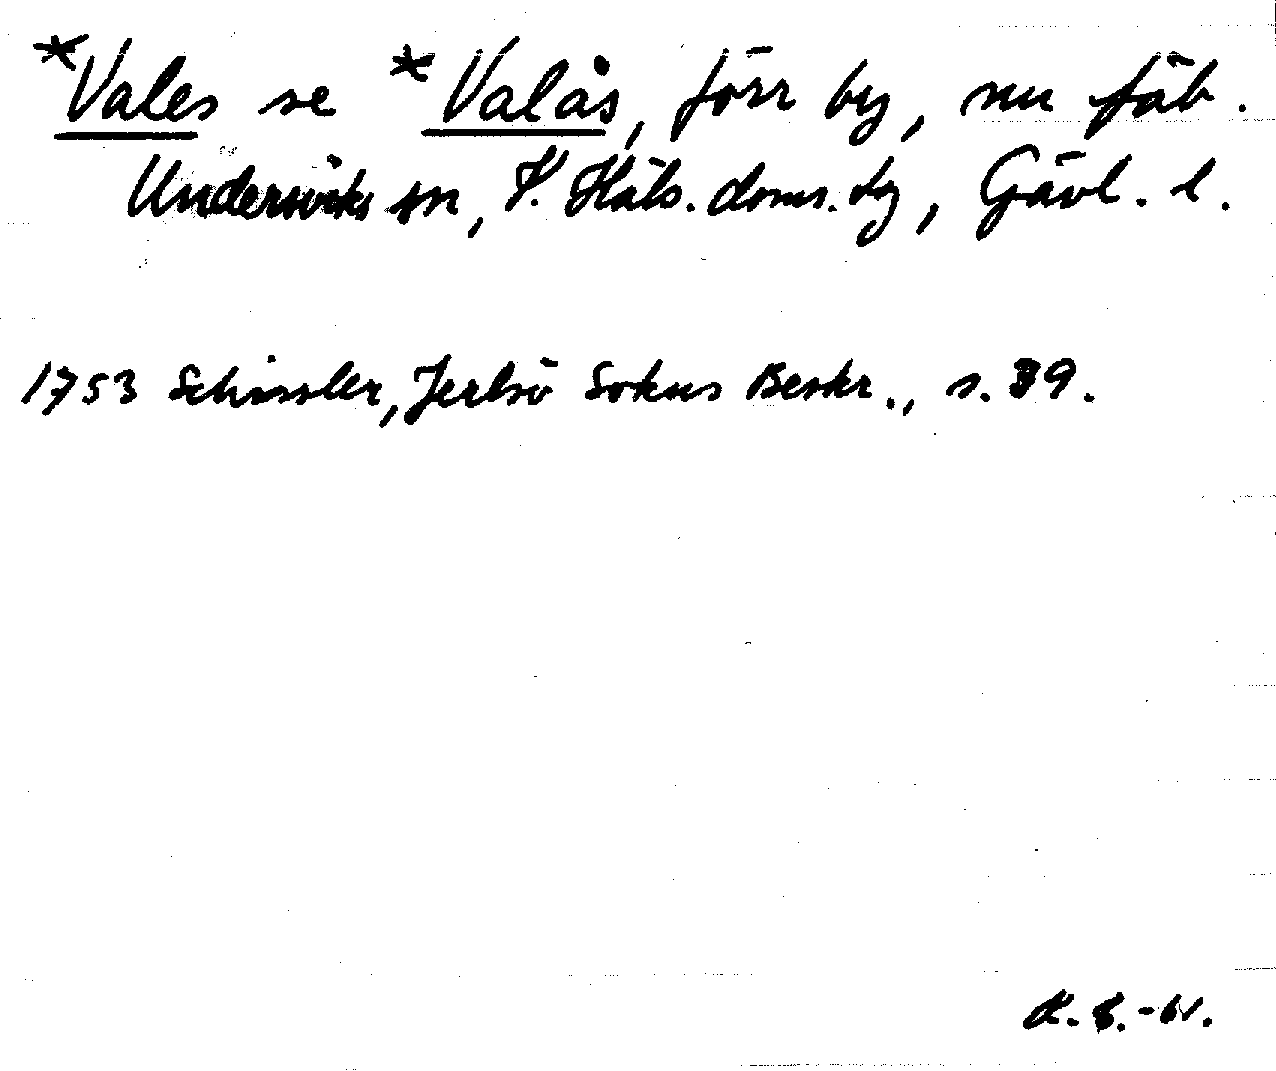 *Vales se *Valås, förr by, nu fäb.
Undersviks sn, V. Häls. doms. by, Gävl. l.
1753 Schissler, Jerlsö Sokns Beskr., s. 39.